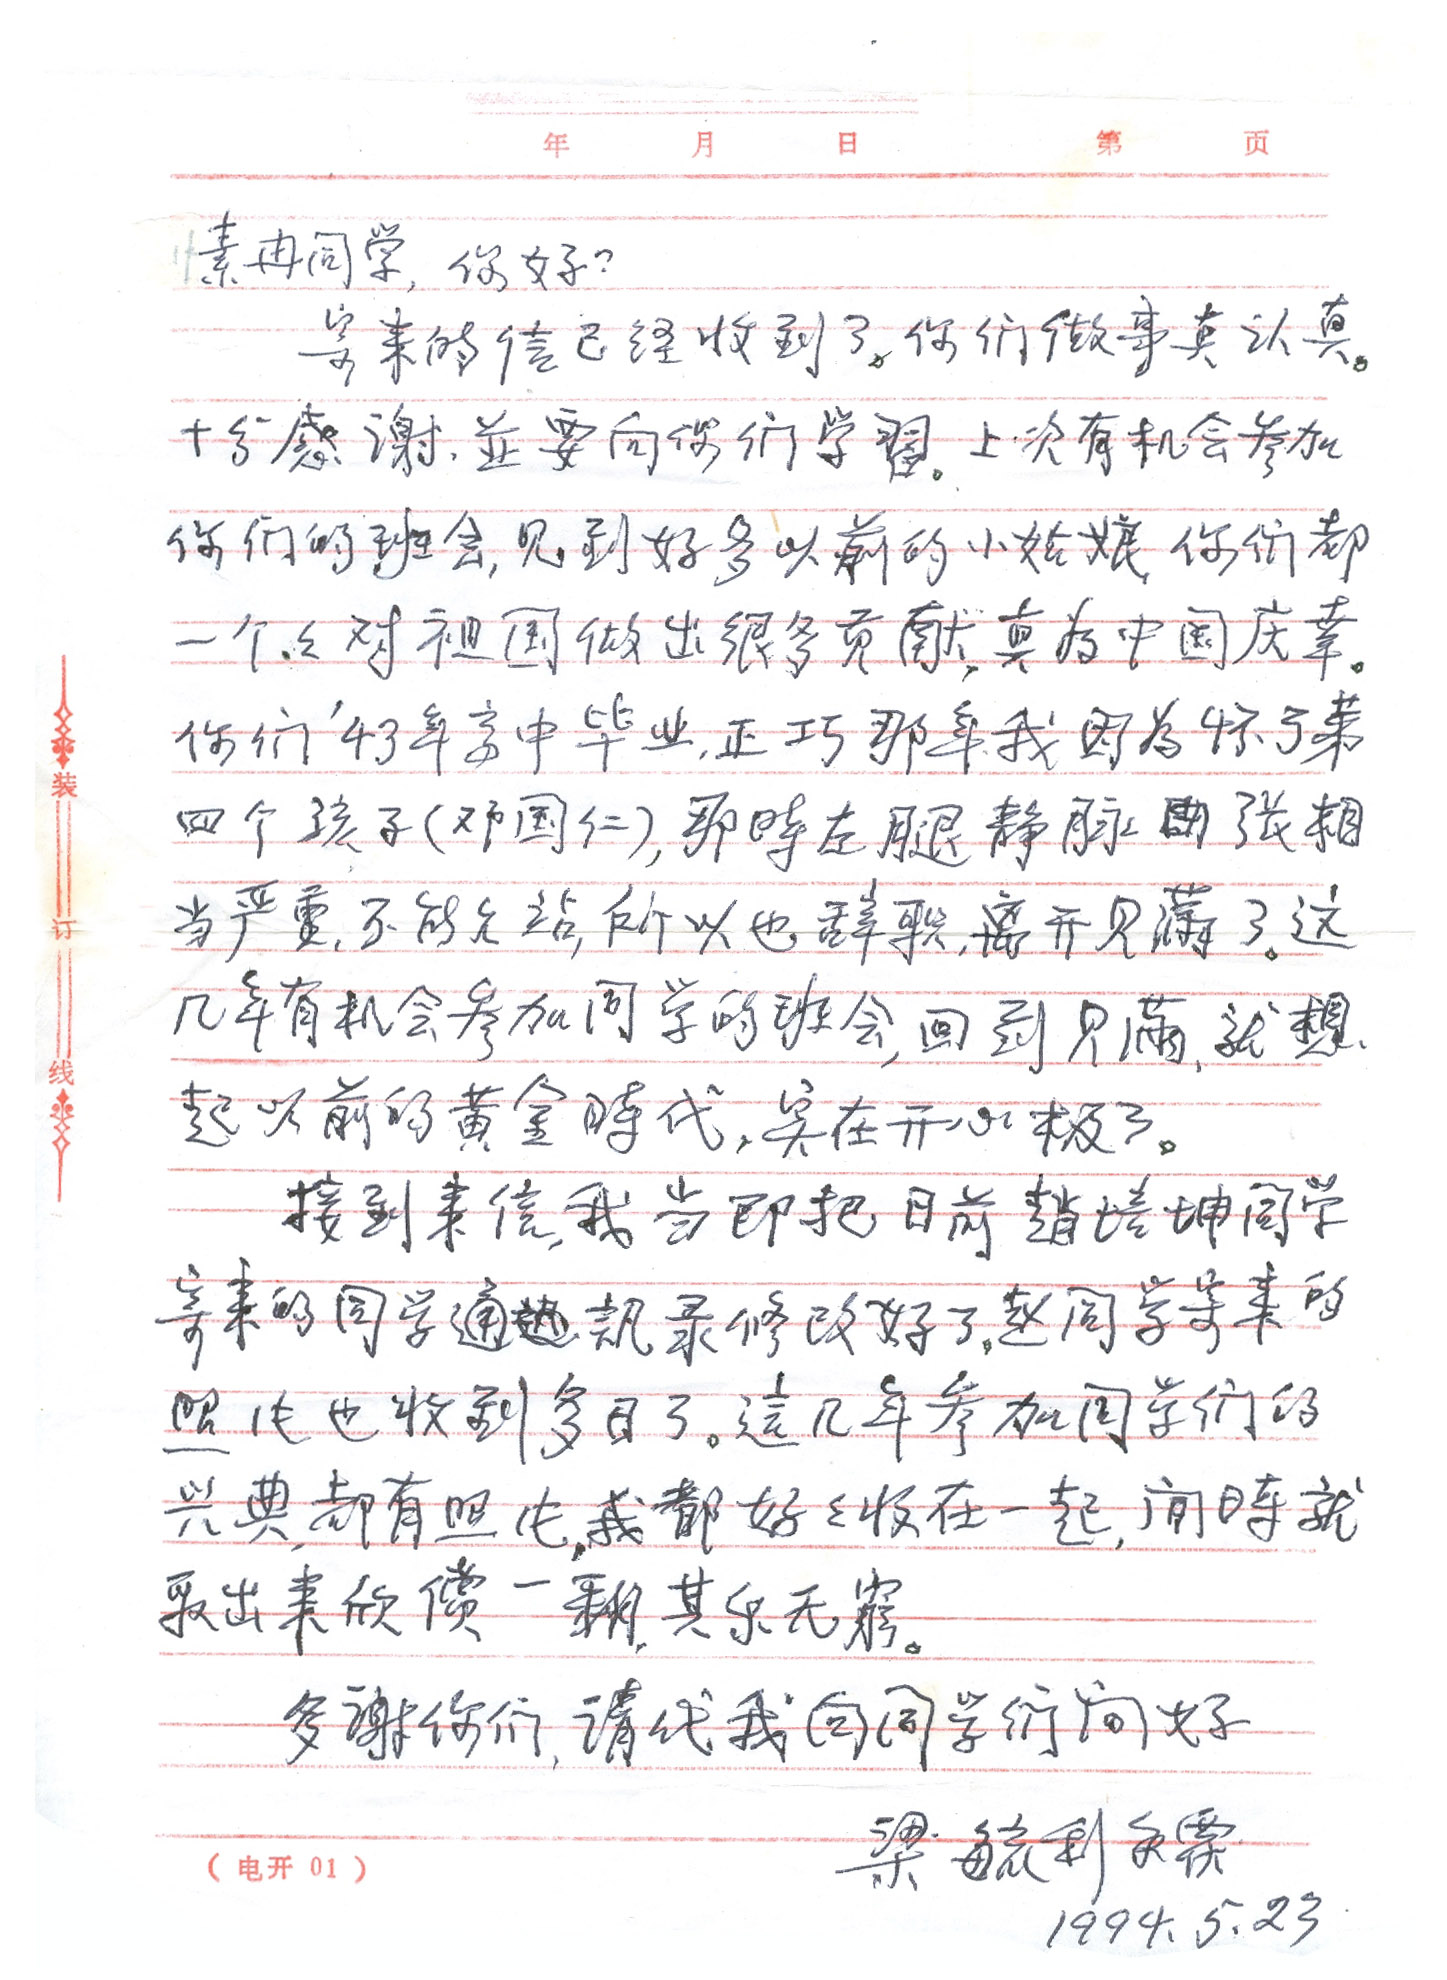 年 月 日 第 页
素冉同学，你好？
寄来的信已经收到了。你们做事真认真。
十分感谢，並要向你们学習。上次有机会参加
你们的班会，见到好多以前的小姑娘，你们都
一个々对祖国做出很多贡献，真为中国庆幸。
你们'43年高中毕业，正巧那年我因为怀了第
四个孩子（邓国仁），那時左腿静脉曲张相
当严重，不能久站，所以也辞联，离开贝满了。这
几年有机会参加同学的班会，回到贝满，就想
起以前的黄金時代，实在开心极了。
接到来信，我当即把日前趙培坤同学
寄来的同学通訊录修改好了。赵同学寄来的
照片也收到多日了。這几年参加同学们的
兴典，都有照片，我都好々收在一起，閒時就
取出来欣償一翻，其乐无窮。
多谢你们，请代我向同学们问好
梁毓利
1994.5.23
装订线
（电开 01）